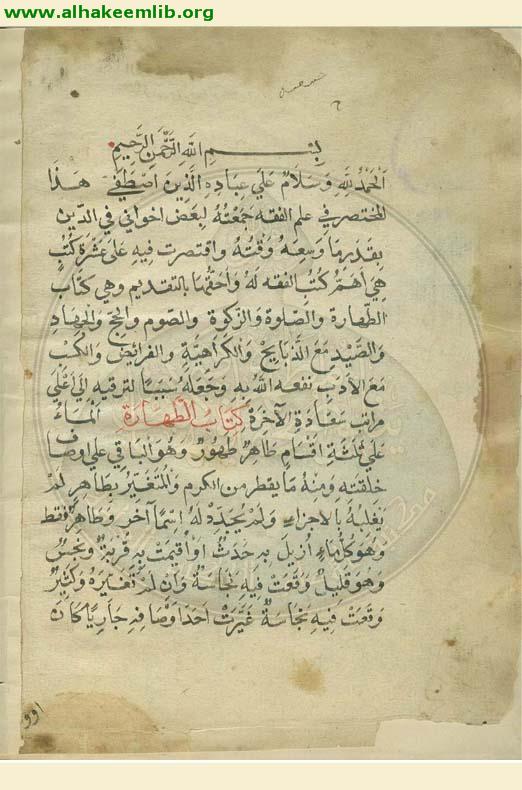 www.alhakeemlib.org
بسم الله الرحمن الرحيم
الحمد لله وسلام على عباده الذين اصطفى هذا
المختصر في علم الفقه جمعته لبعض اخواني في الدين
بقدر ما وسعه وقته واقتصرت فيه على عشرة كتب
هي اهم كتب الفقه له واحقها بالتقديم وهي كتاب
الطهارة والصلوة والزكوة والصوم والحج والجهاد
والصيد مع الذبايح والكراهية والفرائض والكسب
مع الادب نفعه الله به وجعله سببا لترقيه الى اعلى
مراتب سعادة الآخرة كتاب الطهارة الماء
على ثلثة اقسام طاهر طهور وهو الباقي على اوصاف
خلقته ومنه ما يقطر من الكرم والمتغير بطاهر لم
يغلبه بالاجزاء ولم يجدد له اسما آخر وطاهر فقط
وهو كل ماء ازيل به حدث او اقيمت به قربة ونجس
وهو قليل وقعت فيه نجاسة وان لم تغيره وكثير
وقعت فيه نجاسة غيرت احد اوصافه جاريا كان